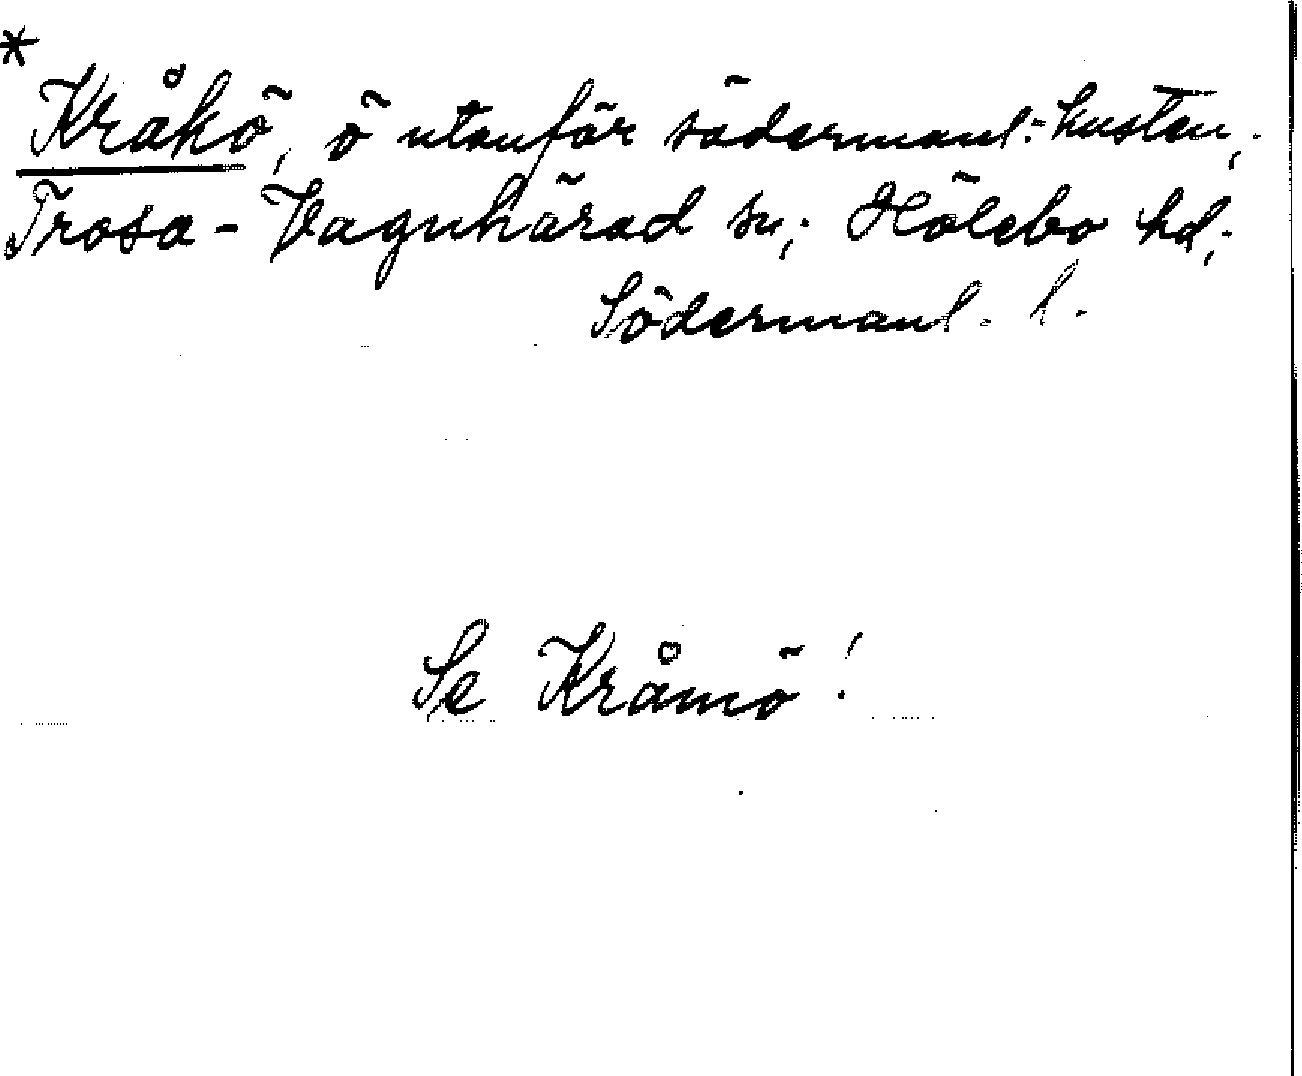 *
Kråkö, ö utanför södermanl.-kusten,
Trosa-Vagnhärad sn, Hölebo hd,
Södermanl. l.
Se Kråmö!